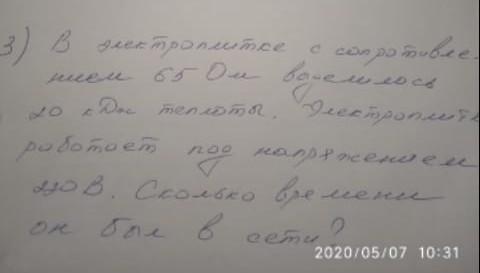 3) В электроплитке с сопротивле-
нием 65 Ом выделилось
20 кДж теплоты. Электроплитк
работает под напряжением
220В. Сколько времени
он был в сети?
2020/05/07 10:31